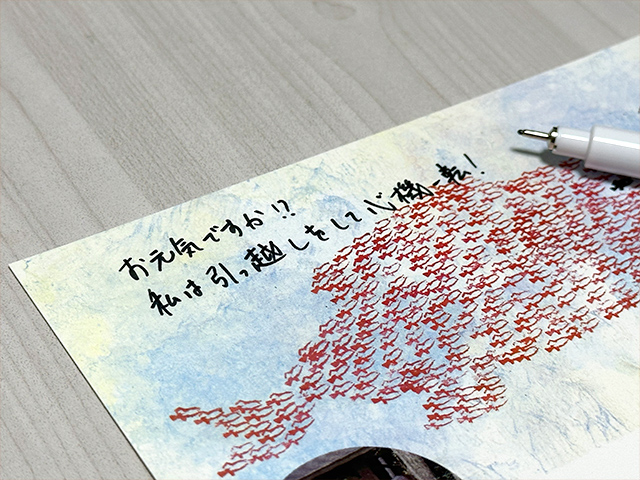 お元気ですか!?
私は引っ越しをして心機一転!